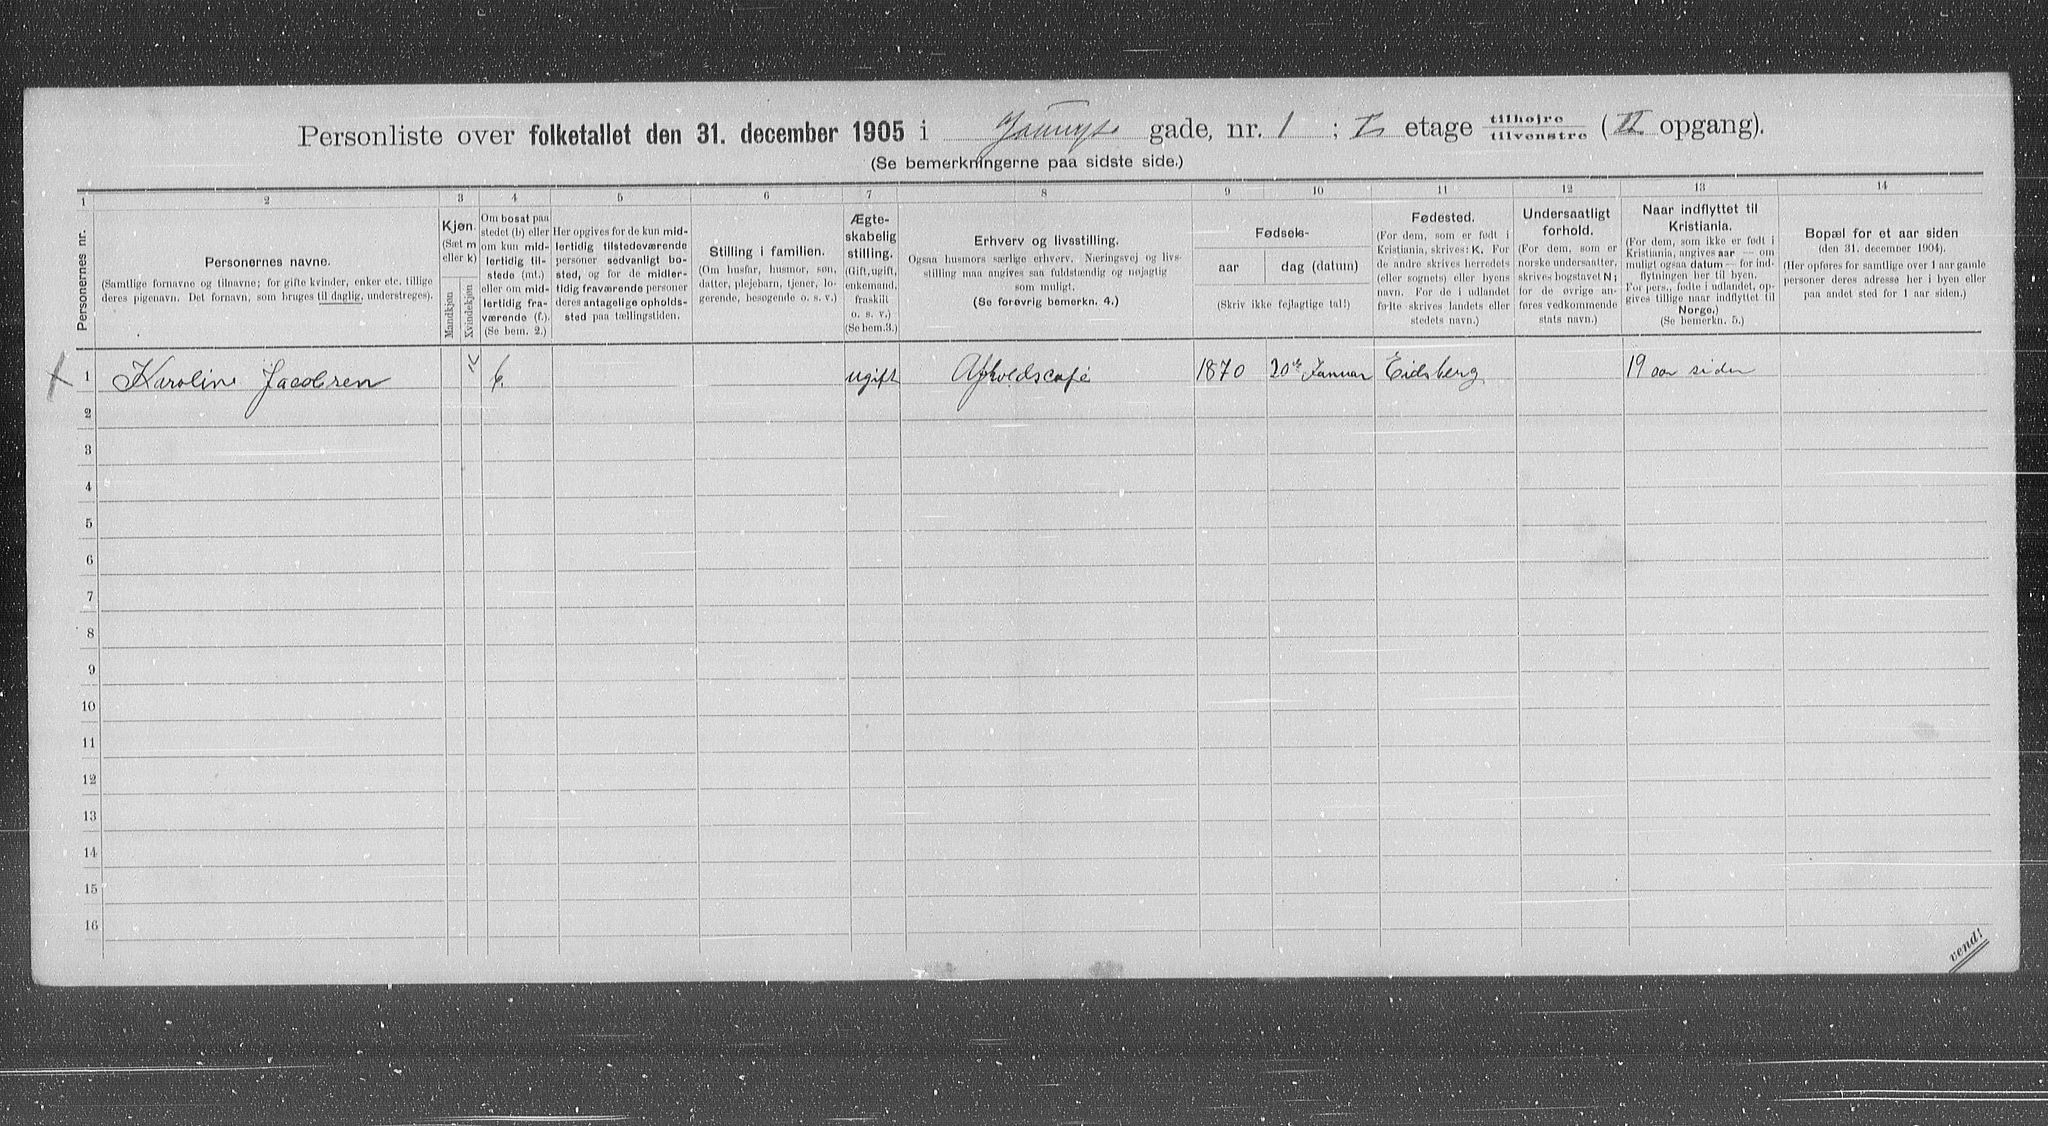 Personliste over folketallet den 31. december 1905 i gade, nr. 1 ; I etage tilhøjre tilvenstre (II opgang).
(Se bemerkningerne paa sidste side.)
1 2 3 4 5 6 7 8 9 10 11 12 13 14
Personernes nr.
Personernes navne.
(Samtlige fornavne og tilnavne; for gifte kvinder, enker etc. tillige
deres pigenavn. Det fornavn, som bruges til daglig, understreges).
Kjøn.
(Sæt m
eller k)
Mandkjøn
Kvindekjøn
Om bosat paa
stedet (b) eller
om kun mid-
lertidig til-
stede (mt.)
eller om mid-
lertidig fra-
værende (f.).
(Se bem. 2.)
Her opgives for de kun mid-
lertidig tilstedeværende
personer sedvanligt bo-
sted, og for de midler-
tidig fraværende personer
deres antagelige opholds-
sted paa tællingstiden.
Stilling i familien.
(Om husfar, husmor, søn,
datter, plejebarn, tjener, lo-
gerende, besøgende o. s. v.)
Ægte-
skabelig
stilling.
(Gift, ugift,
enkemand,
fraskilt
o. s. v.)
(Se bem.3.)
Erhverv og livsstilling.
Ogsaa husmors særlige erhverv. Næringsvej og livs-
stilling maa angives saa fuldstændig og nøjagtig
som muligt.
(Se forøvrig bemerkn. 4.)
Fødsels-
aar dag (datum)
(Skriv ikke fejlagtige tal!)
Fødested.
(For dem, som er født i
Kristiania, skrives: K. For
de andre skrives herredets
(eller sognets) eller byens
navn. For de i udlandet
fødte skrives landets eller
stedets navn.)
Undersaatligt
forhold.
(For dem, som er
norske undersaatter,
skrives bogstavet N;
for de øvrige an-
føres vedkommende
stats navn.)
Naar indflyttet til
Kristiania.
(For dem, som ikke er født i
Kristiania, angives aar — om
muligt ogsaa datum — for ind-
flytningen her til byen.
For pers., fødte i udlandet, op-
gives tillige naar indflyttet til
Norge.)
(Se bemerkn. 5.)
Bopæl for et aar siden
(den 31. december 1904).
(Her opføres for samtlige over 1 aar gamle
personer deres adresse her i byen eller
paa andet sted for 1 aar siden.)
1 Karoline Jacobsen k b. ugift Afholdscafé 1870 20de Januar Eidsberg 19 aar siden
2
3
4
5
6
7
8
9
10
11
12
13
14
15
16
vend!